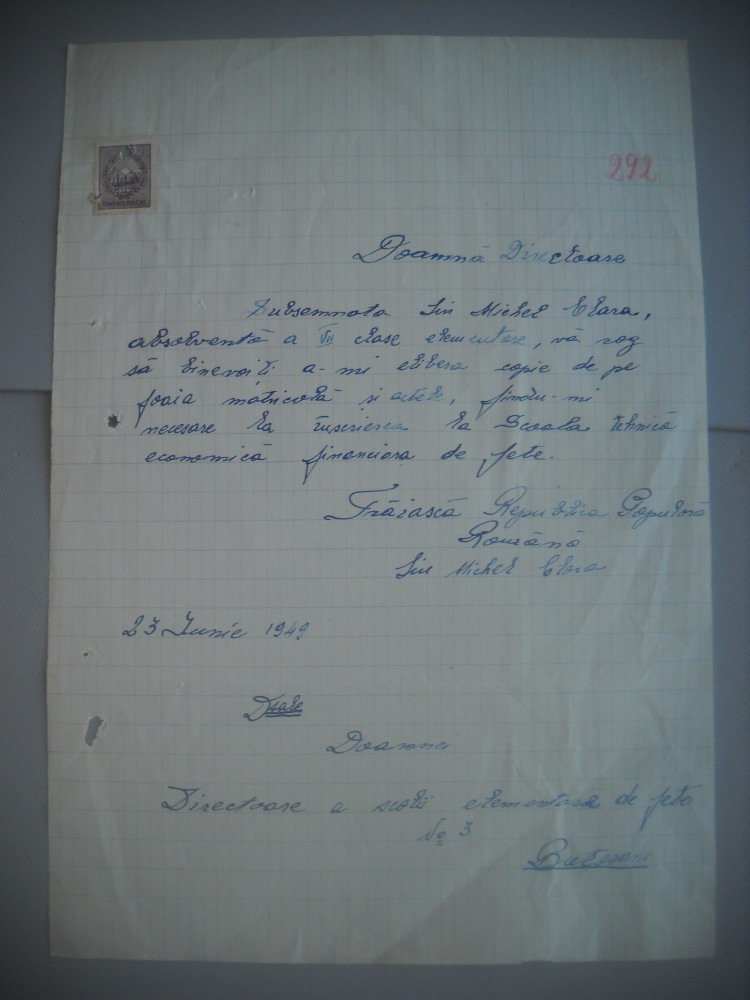 292
Doamnă Directoare
Subsemnata Sin Michel Clara,
absolventă a VII clase elementare, vă rog
să binevoiți a-mi elibera copie de pe
foaia matricolă și actele, fiindu-mi
necesare la înscrierea la Scoala tehnică
economică financiara de fete.
Trăiască Republica Populară
Română
Sin Michel Clara
23 Iunie 1949
Doamnei
Directoare a scolii elementară de fete
No 3
Botosani
TIMBRU FISCAL